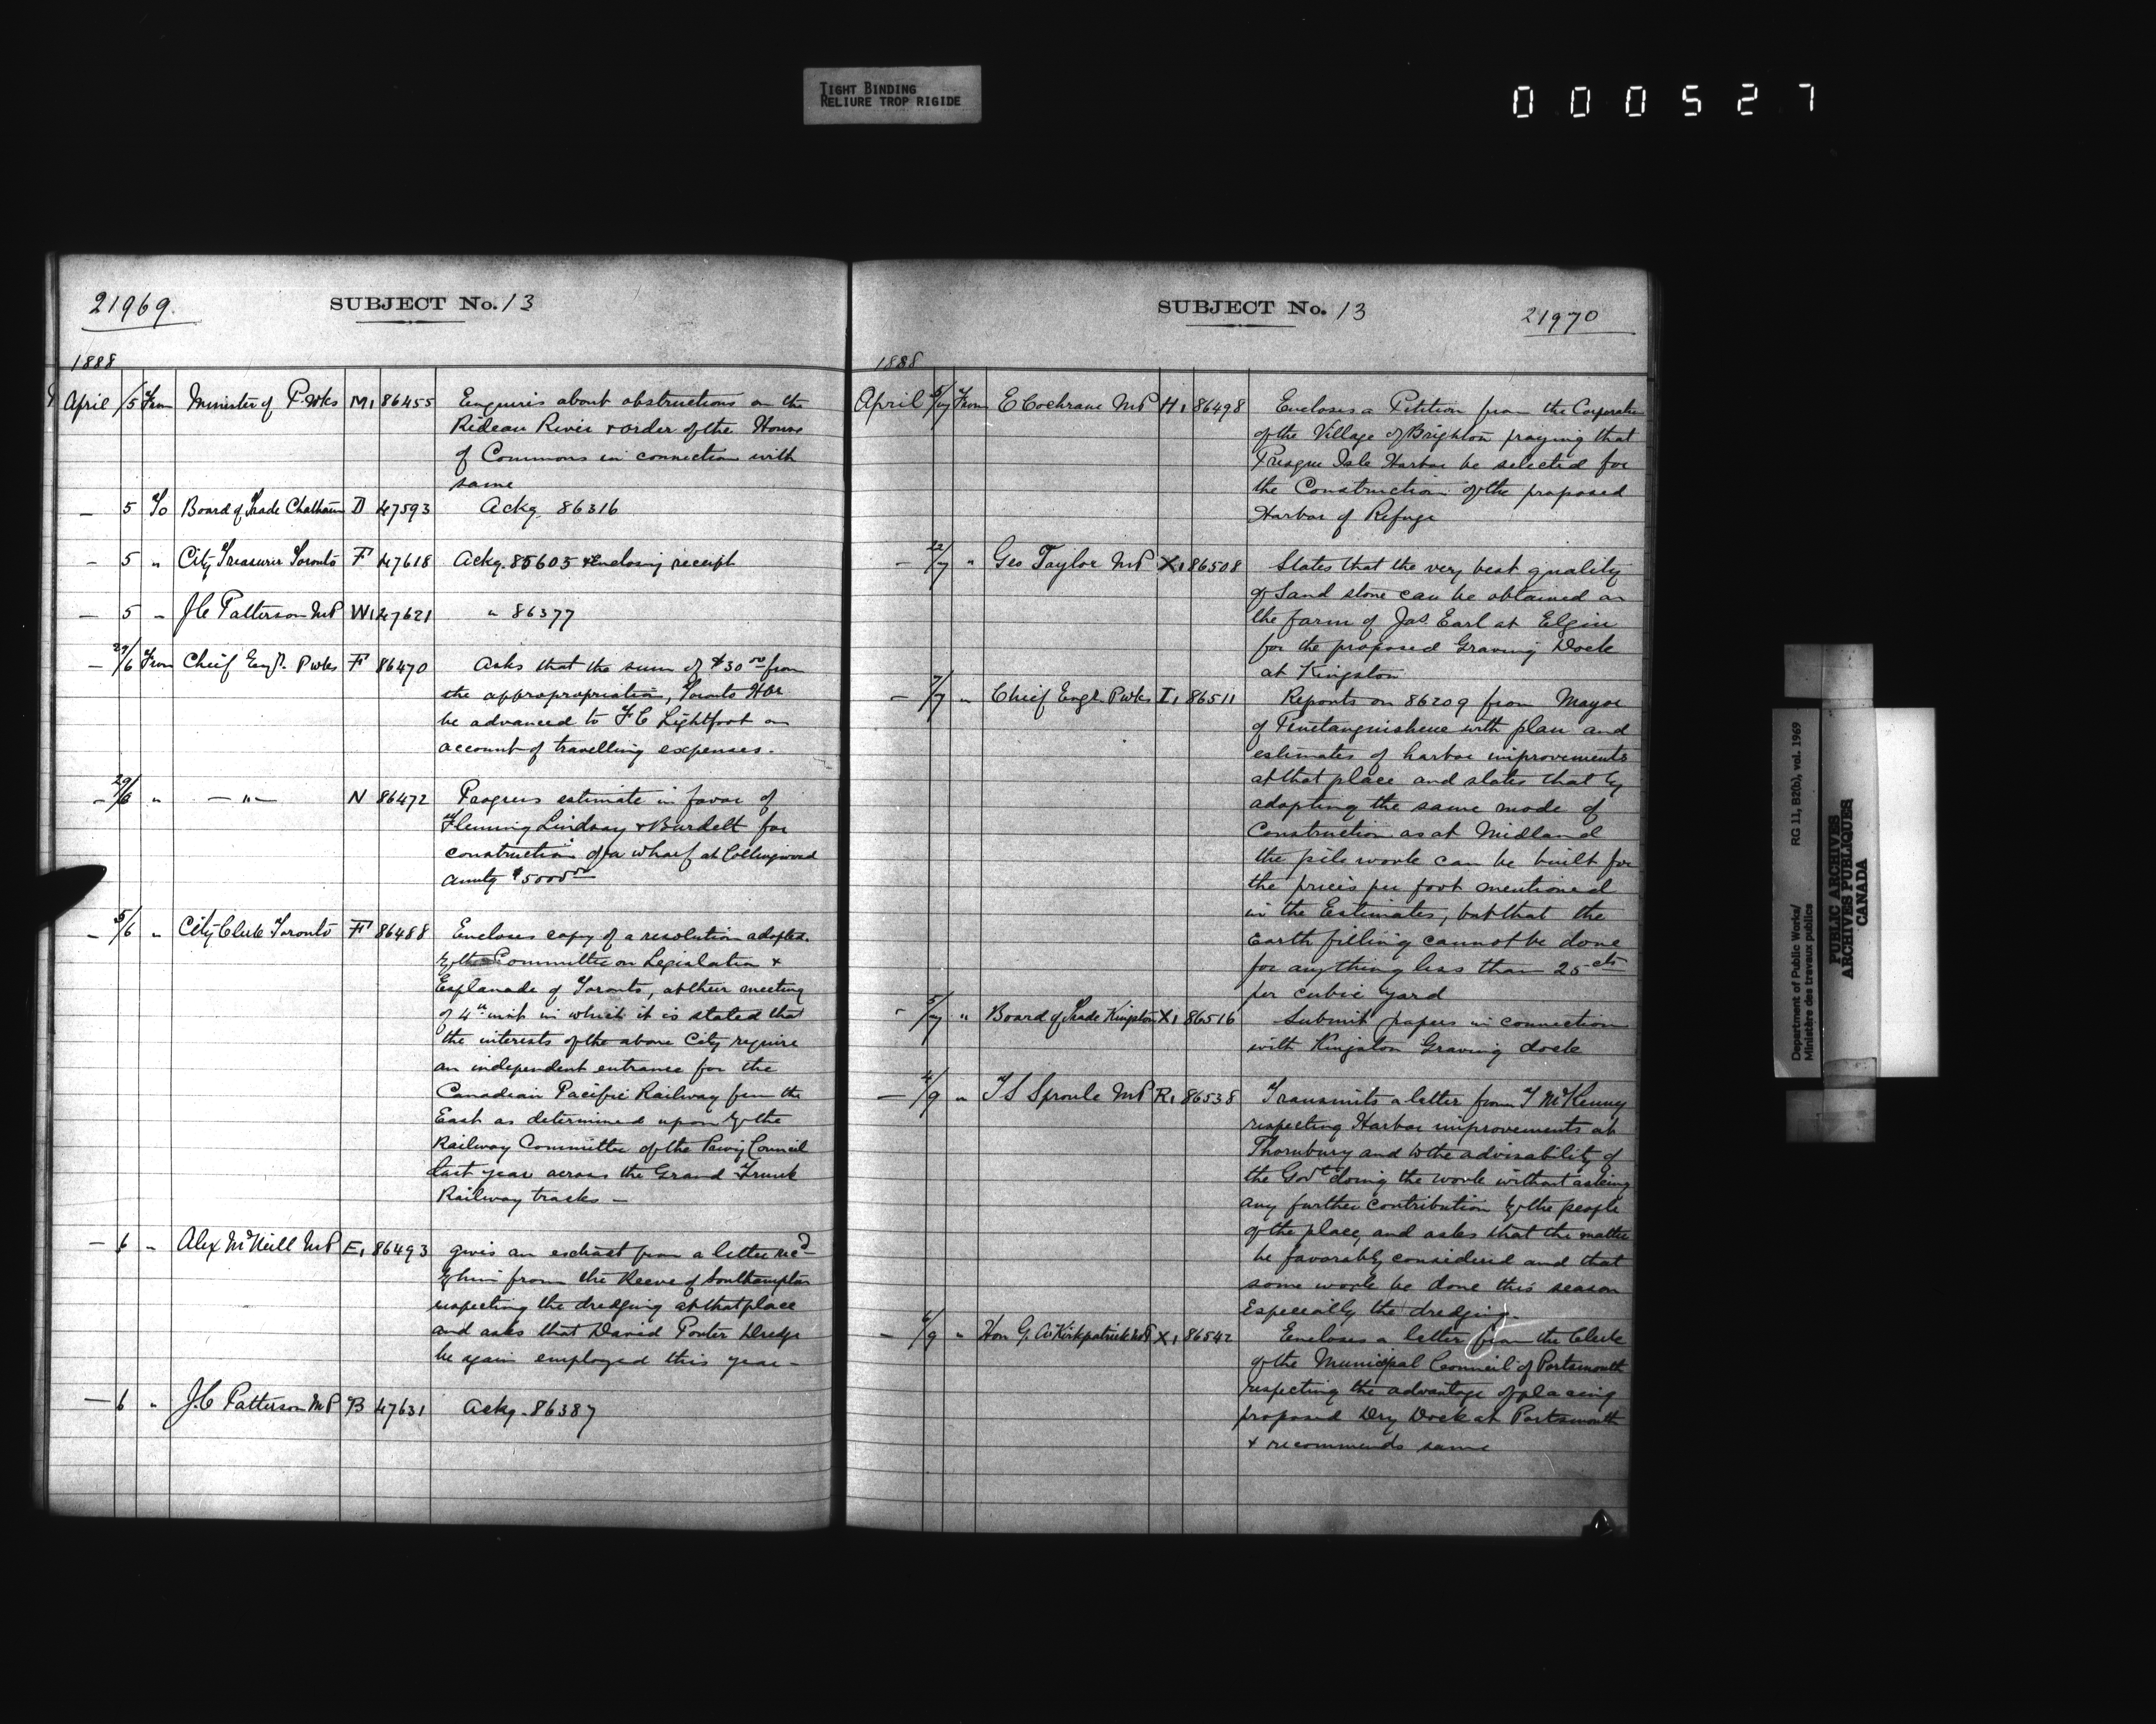 TIGHT BINDING
RELIURE TROP RIGIDE
000527
21969.
SUBJECT No. 13
1888
April /5 From Minister of P. Wks M1 86455 Enquiris about obstructions on the
Rideau River & order of the House
of Commons in connection with
same
— 5 To Board of Trade Chatham D 47593 Ackg. 86316
— 5 " City Treasurer Toronto F 47618 Ackg. 85605 & Enclosing receipt
— 5 " J C Patterson MP W1 47621 " 86377
— 29/6 From Chief Engr. P wks F 86470 Asks that the sum of $30 00 from
the appropropriation, Toronto Hbr
be advanced to F C Lightfoot on
account of travelling expenses.
— 29/6 " — " — N 86472 Progress estimate in favor of
Fleming Lindsay & Burdett for
construction of a wharf at Collingwood
amtg $5000 00
— 5/6 " City Clerk Toronto F 86488 Encloses copy of a resolution adopted
by the Committee on Legislation &
Esplanade of Toronto, at their meeting
of 4th inst in which it is stated that
the interests of the above City require
an independent entrance for the
Canadian Pacific Railway from the
East as determined upon by the
Railway Committee of the Privy Council
last year across the Grand Trunk
Railway tracks —
— 6 " Alex McNeill MP E1 86493 gives an extract from a letter recd
by him from the Reeve of Southampton
respecting the dredging at that place
and asks that David Porter Dredge
be again employed this year —
— 6 " J.C Patterson MP B 47631 Ackg. 86387
SUBJECT No. 13
21970
1888
April 5/7 From E Cochrane MP H1 86498 Encloses a Petition from the Corporation
of the Village of Brighton praying that
Presque Isle Harbor be selected for
the Construction of the proposed
Harbor of Refuge
— 22/7 " Geo Taylor MP X1 86508 States that the very best quality
of Sand stone can be obtained on
the farm of Jas. Earl at Elgin
for the proposed Graving Dock
at Kingston
— 7/7 " Chief Engr. P wks I1 86511 Reports on 86209 from Mayor
of Penetanguishene with plan and
estimates of harbor improvements
at that place and states that by
adopting the same mode of
Construction as at Midland
the pile work can be built for
the prices per foot mentioned
in the Estimates, but that the
Earth filling cannot be done
for anything less than 25 cts
per cubic yard
- 5/7 " Board of Trade Kingston X1 86516 Submit papers in connection
with Kingston Graving dock
— 4/9 " T S Sproule MP R1 86538 Transmits a letter from T McKenny
respecting Harbor improvements at
Thornbury and to the advisability of
the Govt doing the work without asking
any further contribution by the people
of the place, and asks that the matter
be favorably considered and that
some work be done this season
Especially the dredging.
— 6/9 " Hon G. A Kirkpatrick MP X1 86542 Encloses a letter from the Clerk
of the Municipal Council of Portsmouth
respecting the advantage of placing
proposed Dry Dock at Portsmouth
& recommends same
Department of Public Works/ RG 11, B2(b), vol. 1969
Ministère des travaux publics
PUBLIC ARCHIVES
ARCHIVES PUBLIQUES
CANADA